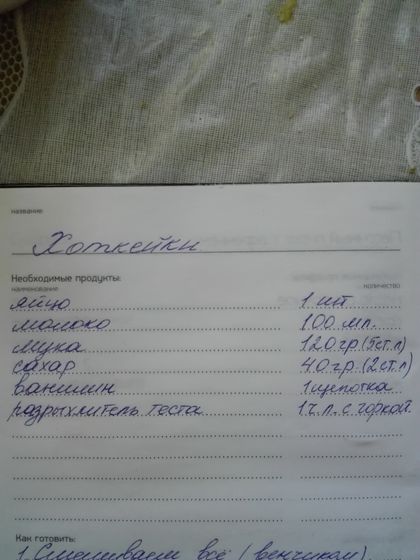 название
Хоткейки
Необходимые продукты:
наименование количество
яйцо 1 шт
молоко 100 мл.
мука 120 гр (5 ст.л)
сахар 40 гр. (2 ст.л)
ванилин 1 щепотка
разрыхлитель теста 1 ч.л. с горкой.
Как готовить:
1. Смешиваем всё (венчиком).